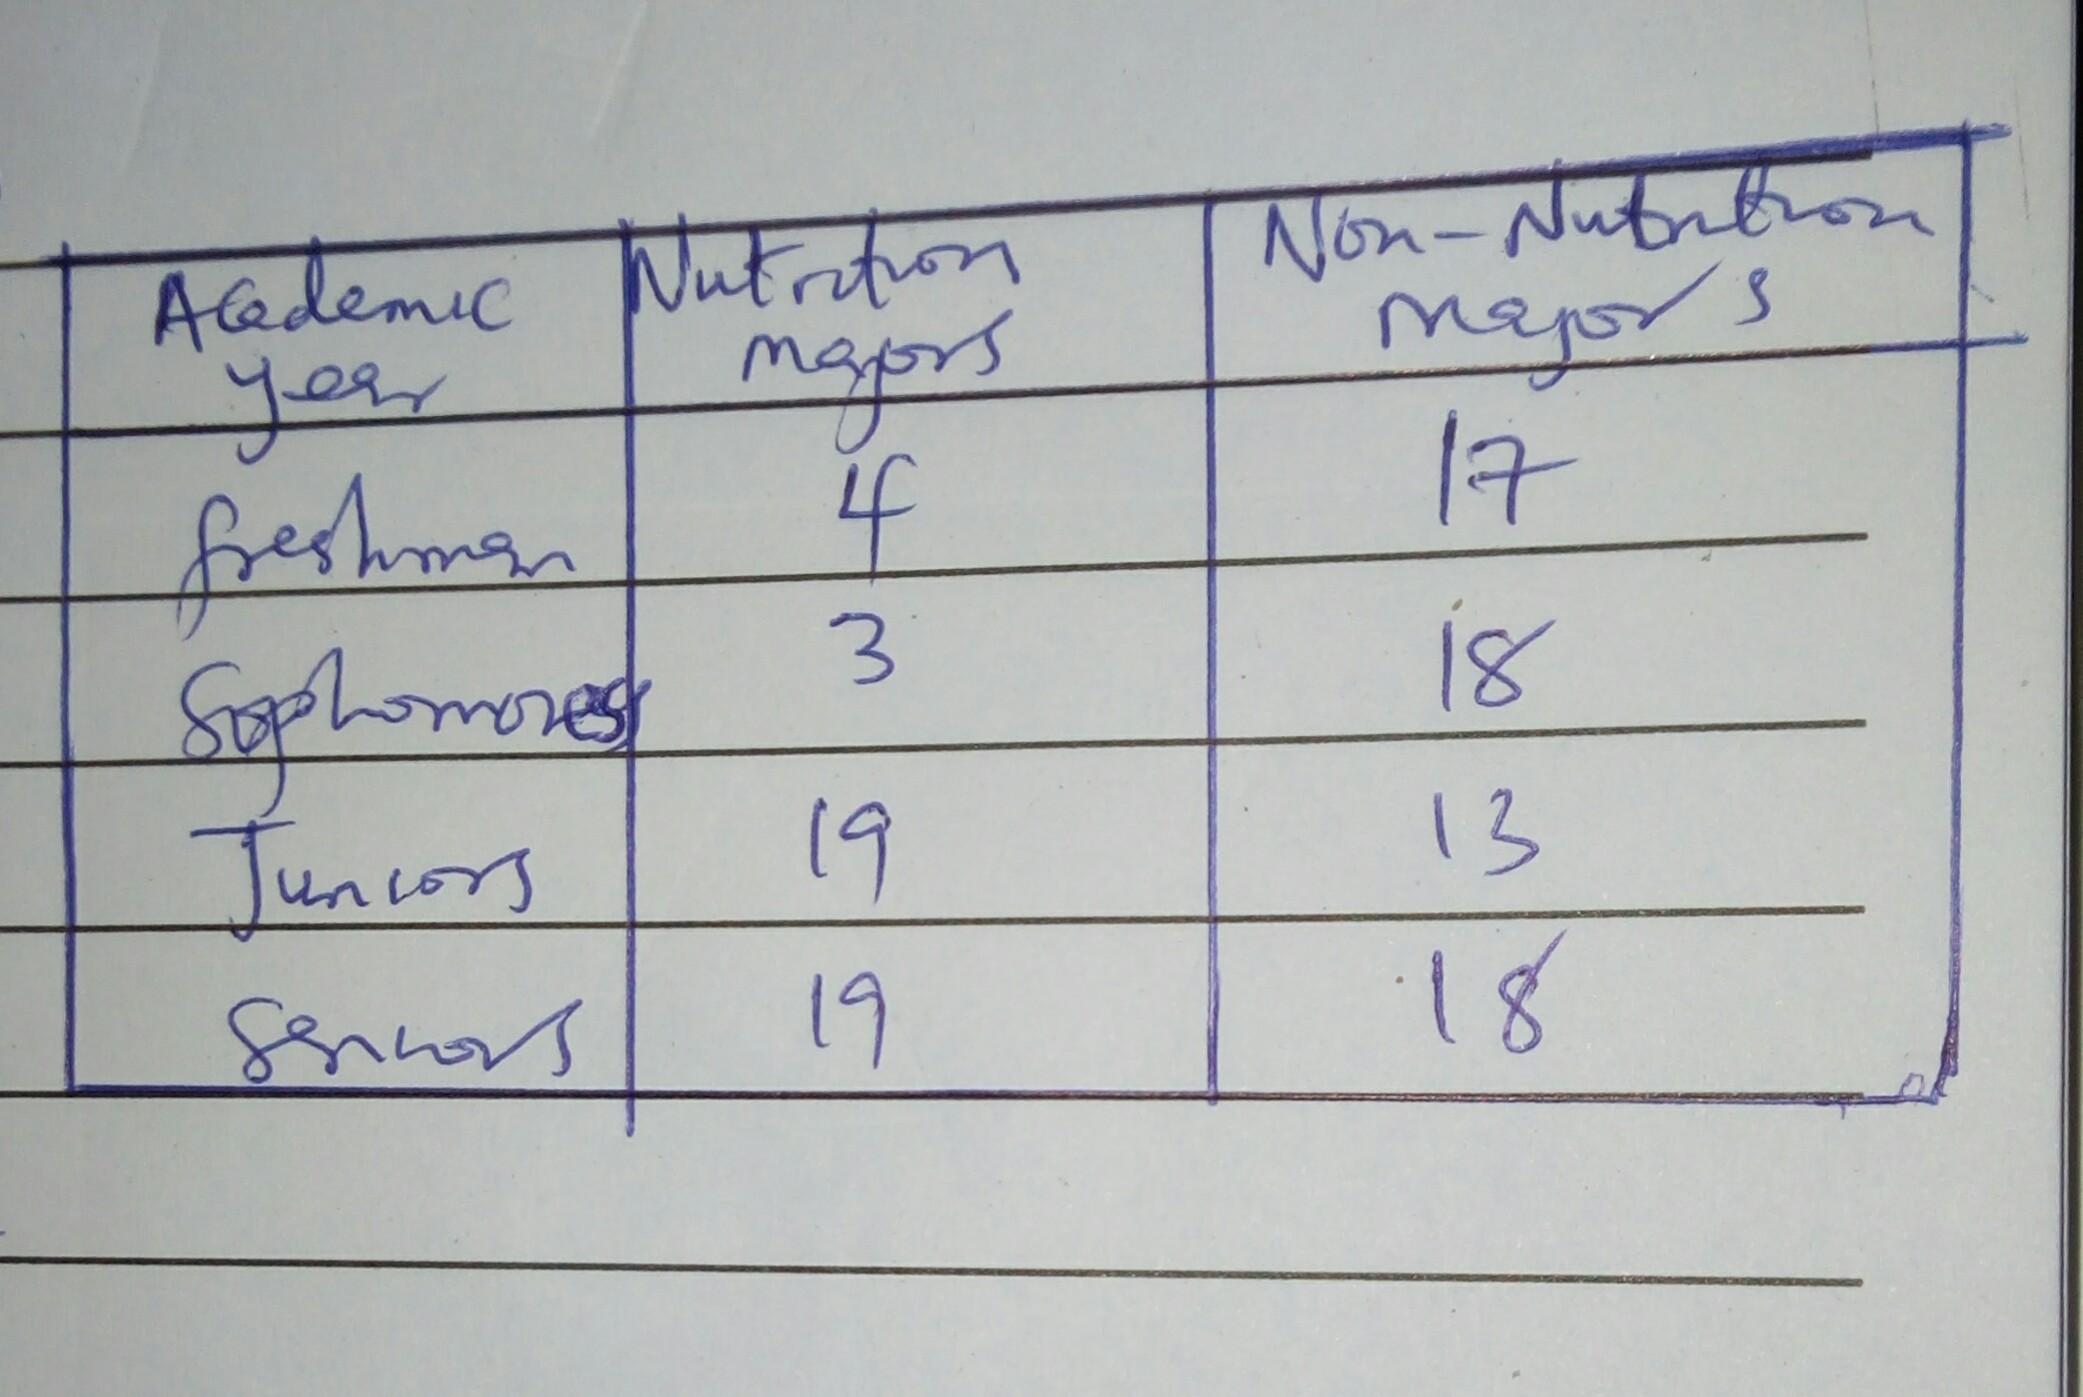 Academic year Nutrition majors Non-Nutrition major's
freshman 4 17
Sophomores 3 18
Juniors 19 13
Seniors 19 18